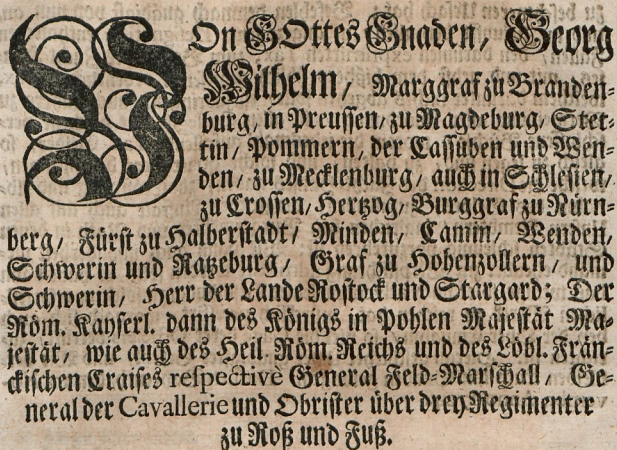 VOn GOttes Gnaden, Georg
Wilhelm / Marggraf zu Branden-
burg, in Preussen/ zu Magdeburg, Stet-
tin/ Pommern, der Cassuben und Wen-
den/ zu Mecklenburg, auch in Schlesien,
zu Crossen, Hertzog, Burggraf zu Nürn-
berg/ Fürst zu Halberstadt/ Minden, Camin, Wenden,
Schwerin und Ratzeburg/ Graf zu Hohenzollern, und
Schwerin, Herr der Lande Rostock und Stargard; Der
Röm. Kayserl. dann des Königs in Pohlen Majestät Ma-
jestät, wie auch des Heil. Röm. Reichs und des Löbl. Frän-
ckischen Craises respectivè General Feld-Marschall, Ge-
neral der Cavallerie und Obrister über drey Regimenter
zu Roß und Fuß.